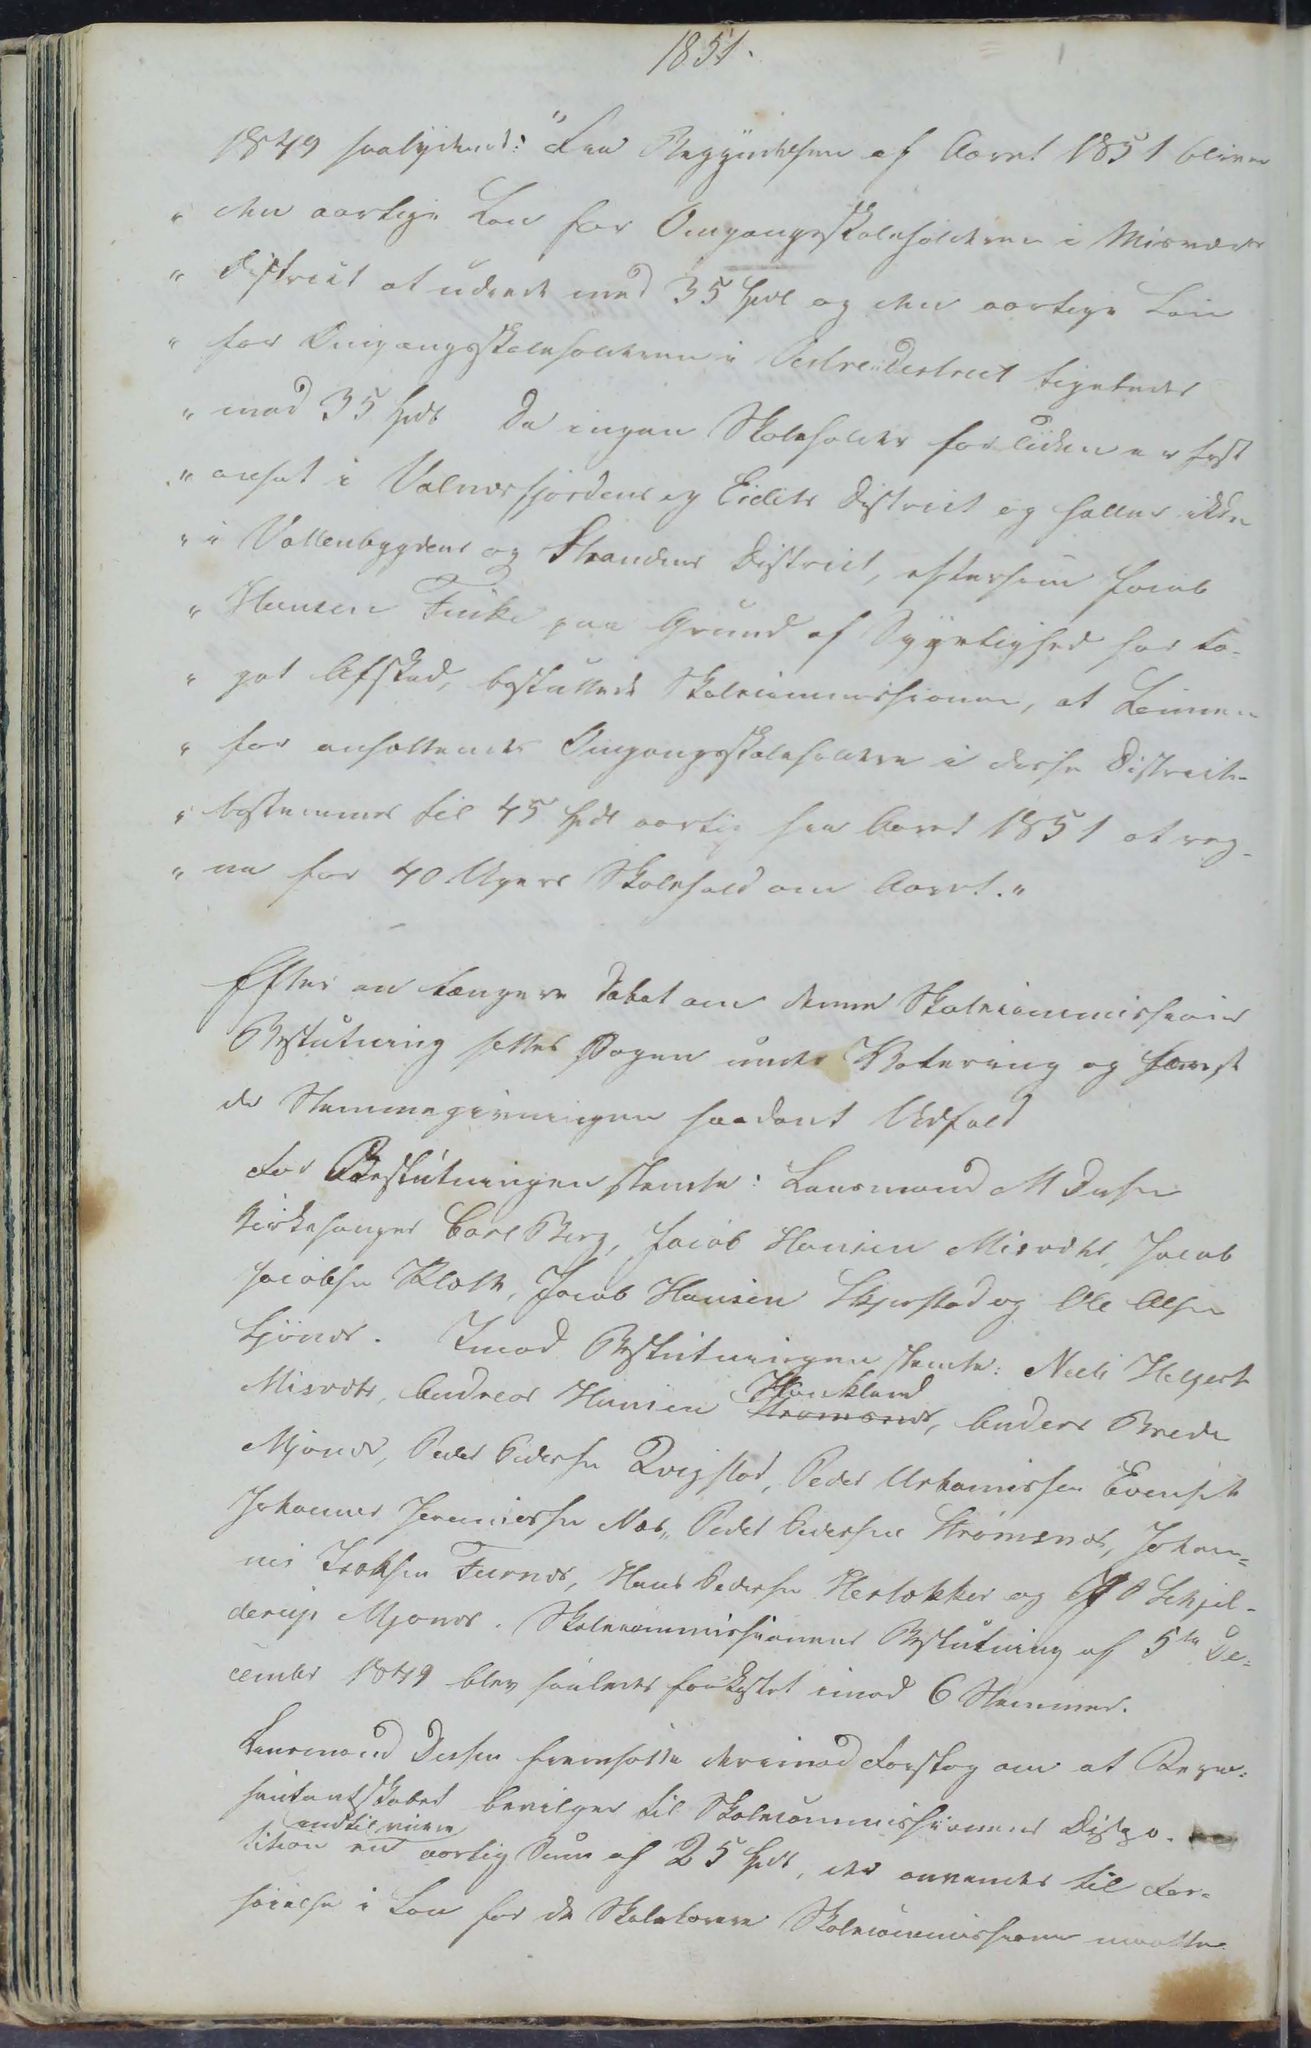 1851.
1849 saalydende: "Fra Begyndelsen af Aaret 1851 bliver
" den aarlige Løn for Omgangsskoleholderen i Misvær
" District at udrede med 35 Spdl og den aarlige Løn
" for Omgangsskoleholderen i Vestre District ligeledes
" med 35 Spdl Da ingen Skoleholder for Tiden er fast
" ansat i Valnesfjordens og Eidets District og heller ikke
" i Vallenbygdens og Strandens District, eftersom Jacob
" Hansen Fuske paa Grund af Sygelighed har ta-
" get Afsked, besluttede Skolecommissionen, at Lønnen
" for ansættende Omgangsskoleholdere i disse Districter
" bestemmes til 45 Spdl aarlig fra Aaret 1851 at reg-
" ne for 40 Ugers Skolehold om Aaret."
Efter en længere Debat om denne Skolecommissions
Beslutning sattes Sagen under Votering og havde
da Stemmegivningen saadant Udfald
For Beslutningen stemte: Lensmand M Dahse
Kirkesanger Carl Berg, Jacob Hansen Misvær, Jacob
Jacobsen Kløth, Jacob Hansen Skjerstad og Ole Olsen
Ljønes. Imod Beslutningen stemte: Niels Helgesen
Misvær, Andreas Hansen Strømsnes, Anders Brede
Haukland
Mjønes, Peder Pedersen Qvigstad, Peder Urbanussen Evensgt
Johannes Jeremiassen Nes, Peder Pedersen Strømsnes, Johan-
nes Isaksen Furnes, Hans Pedersen Hestøkker og P Schjel-
derup Mjønes. Skolecommissionens Beslutning af 5te De-
cember 1849 blev saaledes forkastet imod 6 Stemmer.
Lensmand fremsatte derimod Forslag om at Repræ-
sentantskabet bevilger til Skolecommissionens Dispo-
indtil videre
sition en aarlig Sum af 25 Spdl, der anvendes til For-
høielse i Løn for de Skolelærere Skolecommissionen maatte